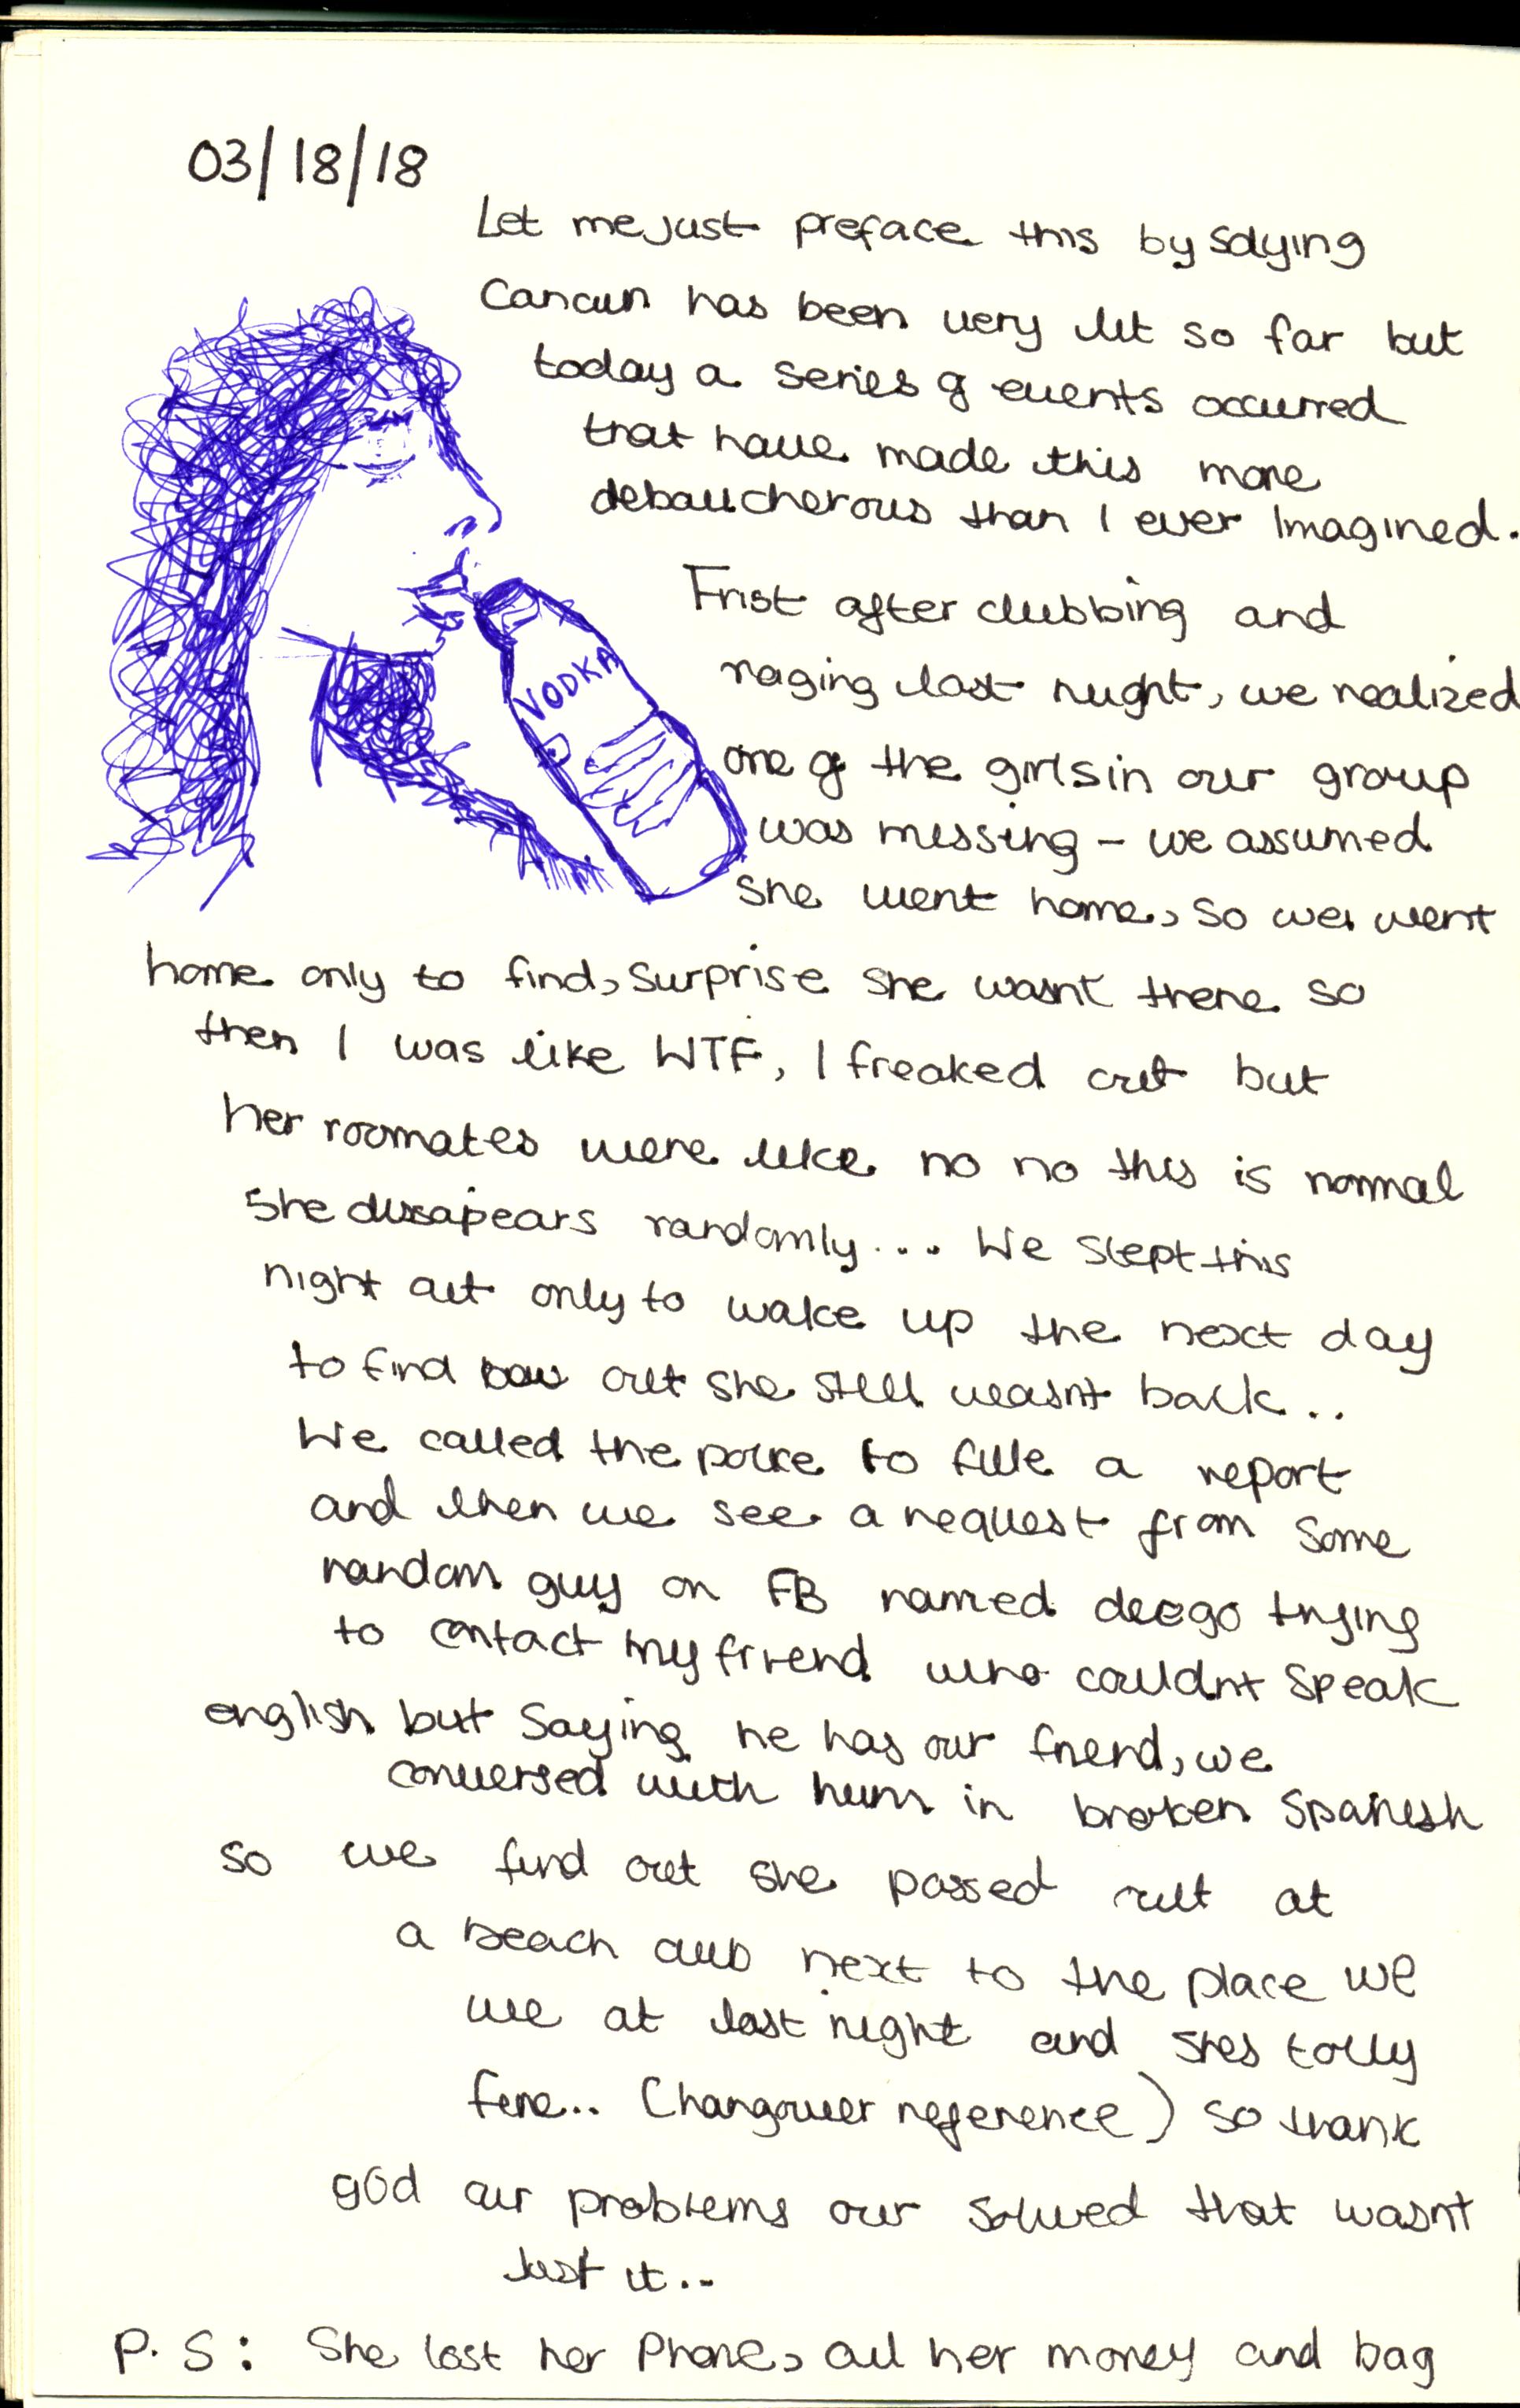 03/18/18
Let me just preface this by saying
Cancun has been very lit so far but
today a series of events occurred
that have made this more
debaucherous than I ever Imagined.
Frist after clubbing and
raging last night, we realized
VODKA
one of the girls in our group
was missing - we assumed
she went home, so we went
home only to find, surprise she wasnt there so
then I was like WTF, I freaked out but
her roomates were like no no this is normal
she dissapears randomly... We slept this
night out only to wake up the next day
to find out she still wasnt back..
We called the police to file a report
and then we see a request from some
random guy on FB named deego trying
to contact my friend who couldnt speak
english but saying he has our friend, we
conversed with him in broken Spanish
so we find out she passed out at
a beach club next to the place we
we at last night and shes tolly
fine.. (hangover reference) so thank
god our problems our solved that wasnt
Just it..
P.S: She lost her Phone, all her money and bag